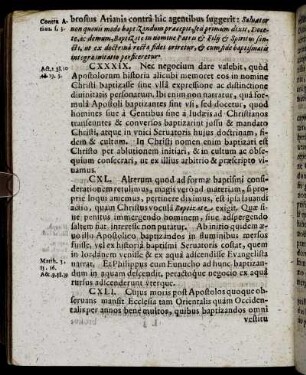 Contra A-
rian. l. 3.
brosius Arianis contrà hic agentibus suggerit: Salvator
non quovis modo baptizandum præcepit, sed primùm dixit, Doce-
te, ac demum, Baptizate in nomine Patris & Filij & Spiritus san-
cti, ut ex doctrina recta fides oriretur, & cum fide baptismatis
integra initiatio perficeretur.
CXXXIX. Nec negocium dare valebit, quòd
Apostolorum historia alicubi memoret eos in nomine
Christi baptizasse sine ullâ expressione ac distinctione
divinitatis personarum. Ibi enim non narratur, quâ for-
mulâ Apostoli baptizantes sine usi, sed docetur, quod
homines sive à Gentibus sive à Judæis ad Christianos
transeuntes & conversos baptizari jusserint & mandato
Christi, atque in unici Servatoris hujus doctrinam, fi-
dem & cultum. In Christi nomen enim baptizat est
Christo per ablutionem initiari, & in cultum ac ob-
sequium consecrari, ut ex illius arbitrio & præscripto vi-
vamus.
CXL. Alterum quod ad formæ baptismi consi-
derationem retulimus, magis verò ad materiam, si pro-
priè loqui amemus, pertinere diximus, est ipsa lavandi
actio, quam Christus voce exigit. Quæ si-
ve penitus immergendo hominem, sive adspergendo
saltem fiat, interesse non putatur. Ab initio quidem æ-
vo illo Apostolico baptizandos in fluminibus mersos
fuisse, vel ex historia baptismi Servatoris constat, quem
in Jordanem venisse & ex aqua adscendisse Evangelista
narrat. Et Philippus cum Eunucho ad hunc baptizan-
dum in aquam descendit, peractoque negocio ex aquâ
rursus adscenderunt uterque.
Matth. 3.
CXLI. Cujus moris post Apostolos quoque ob-
servans mansit Ecclesia tam Orientalis quàm Occiden-
talis per annos benè multos, quibus baptizandos omni
vestitu